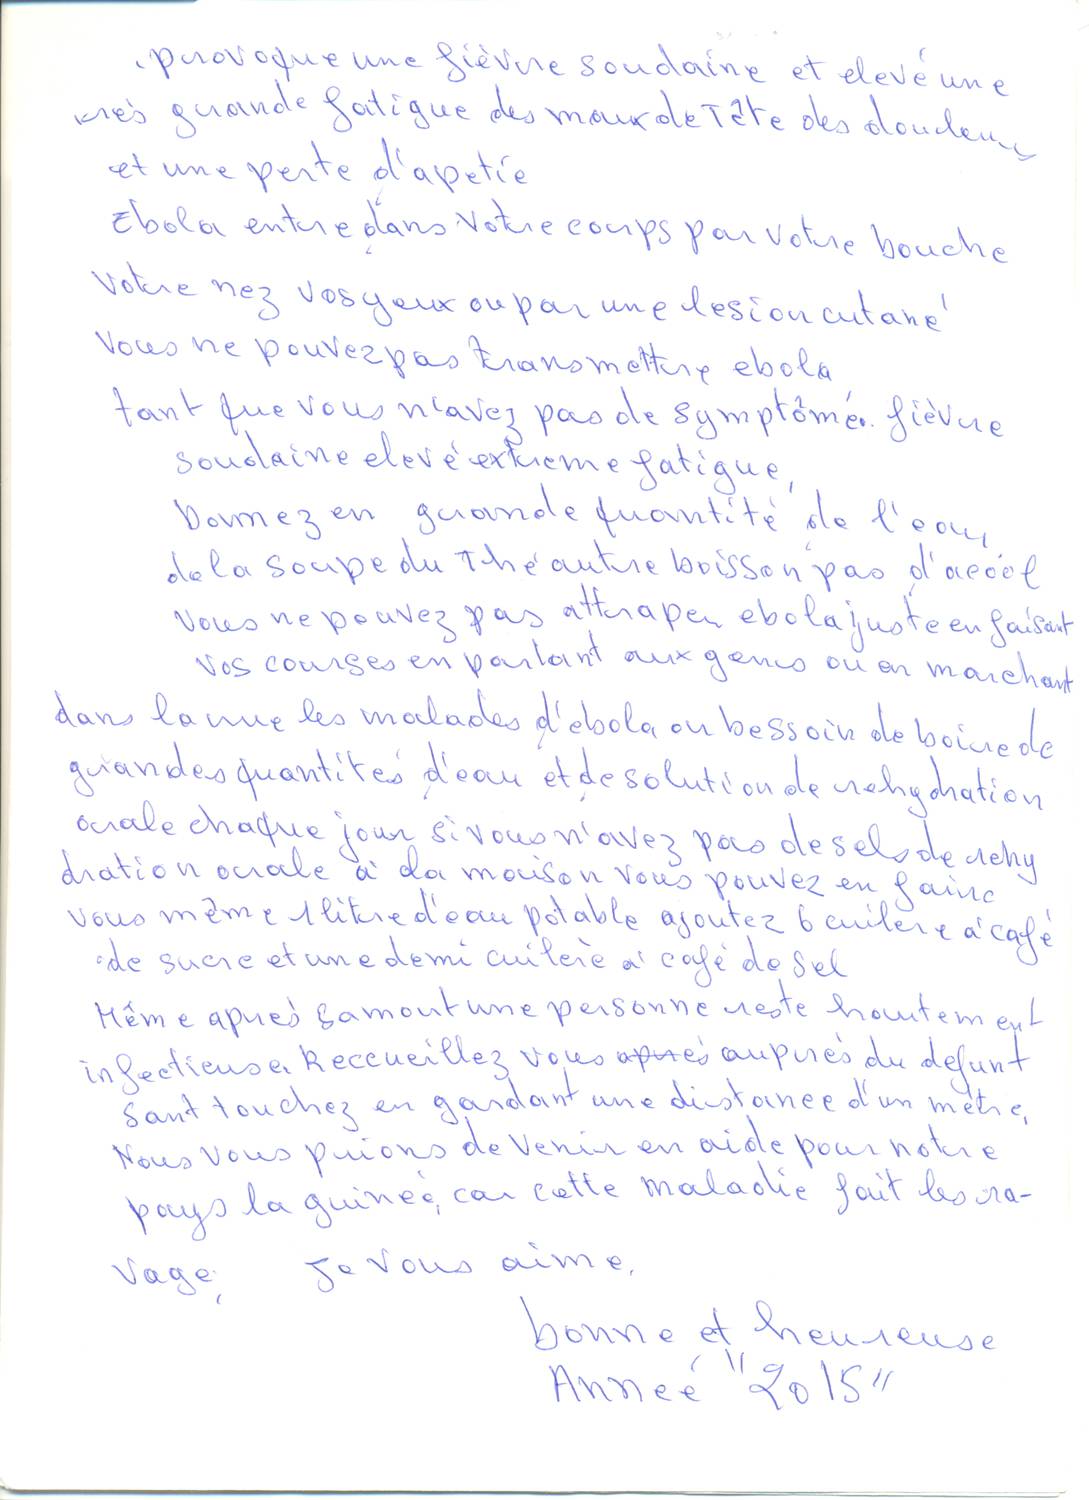 provoque une fièvre soudaine et elevé une
très grande fatigue des maux de Tête des douleurs
et une perte d'apetie
Ebola entre dans votre corps par votre bouche
votre nez vos yeux ou par une lesion cutané
Vous ne pouvez pas transmettre ebola
tant que vous n'avez pas de symptôme. fièvre
soudaine elevé extreme fatigue,
Donnez en grande quantité de l'eau,
de la soupe du Thé autre boisson pas d'acool
vous ne pouvez pas attraper ebola juste en faisant
vos courses en parlant aux gens ou en marchant
dans la rue les malades d'ebola on bessoin de boire de
grandes quantités d'eau et de solution de rehydration
orale chaque jour si vous n'avez pas de sels de rehy
dration orale à la maison vous pouvez en faire
vous même 1 litre d'eau potable ajoutez 6 cuilere à café
de sucre et une demi cuilère à café de sel
Même après sa mort une personne reste hautement
infectieuse. Reccueillez vous après auprès du defunt
sant touchez en gardant une distance d'un mètre,
Nous vous prions de venir en aide pour notre
pays la guineé, car cette maladie fait les ra-
vage, Je vous aime,
bonne et heureuse
Anneé "2015"